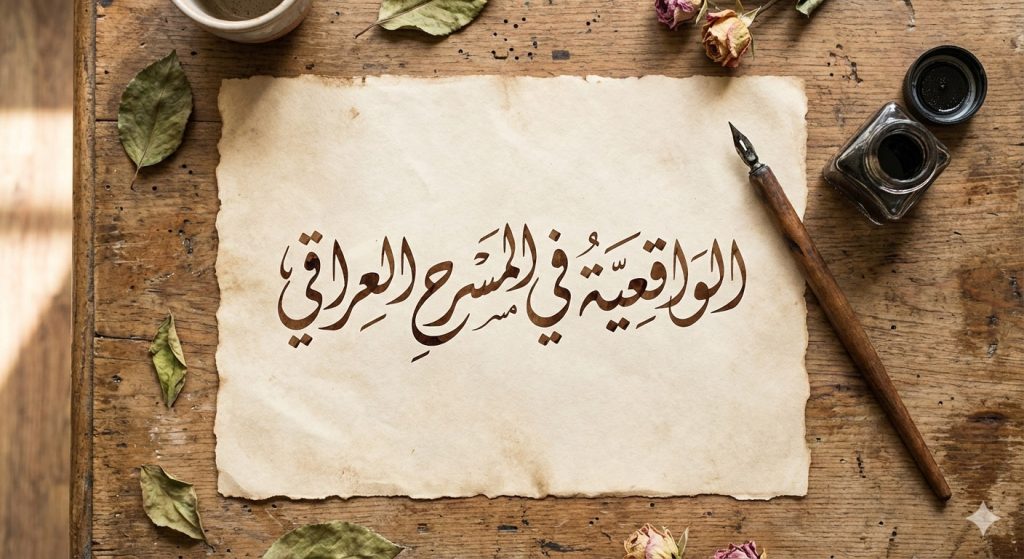 الوَاقِعِيَّةُ في المَسْرحِ العِراقي